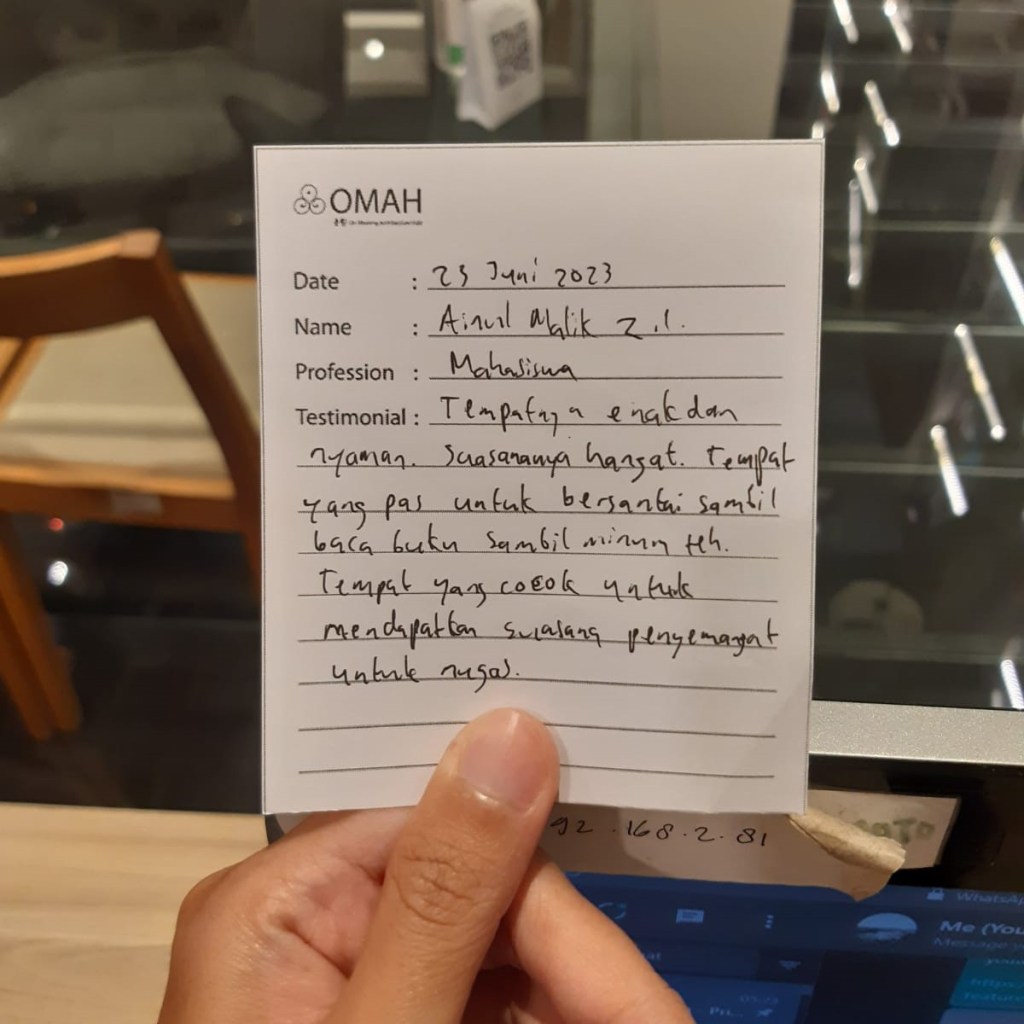 OMAH
Date : 23 Juni 2023
Name : Ainul Malik Z.I.
Profession : Mahasiswa
Testimonial : Tempatnya enak dan
nyaman. Suasananya hangat. Tempat
yang pas untuk bersantai sambil
baca buku sambil minum teh.
Tempat yang cocok untuk
mendapatkan suasana penyemangat
untuk nugas.
92.168.2.81
WhatsAp
Me (You
Message